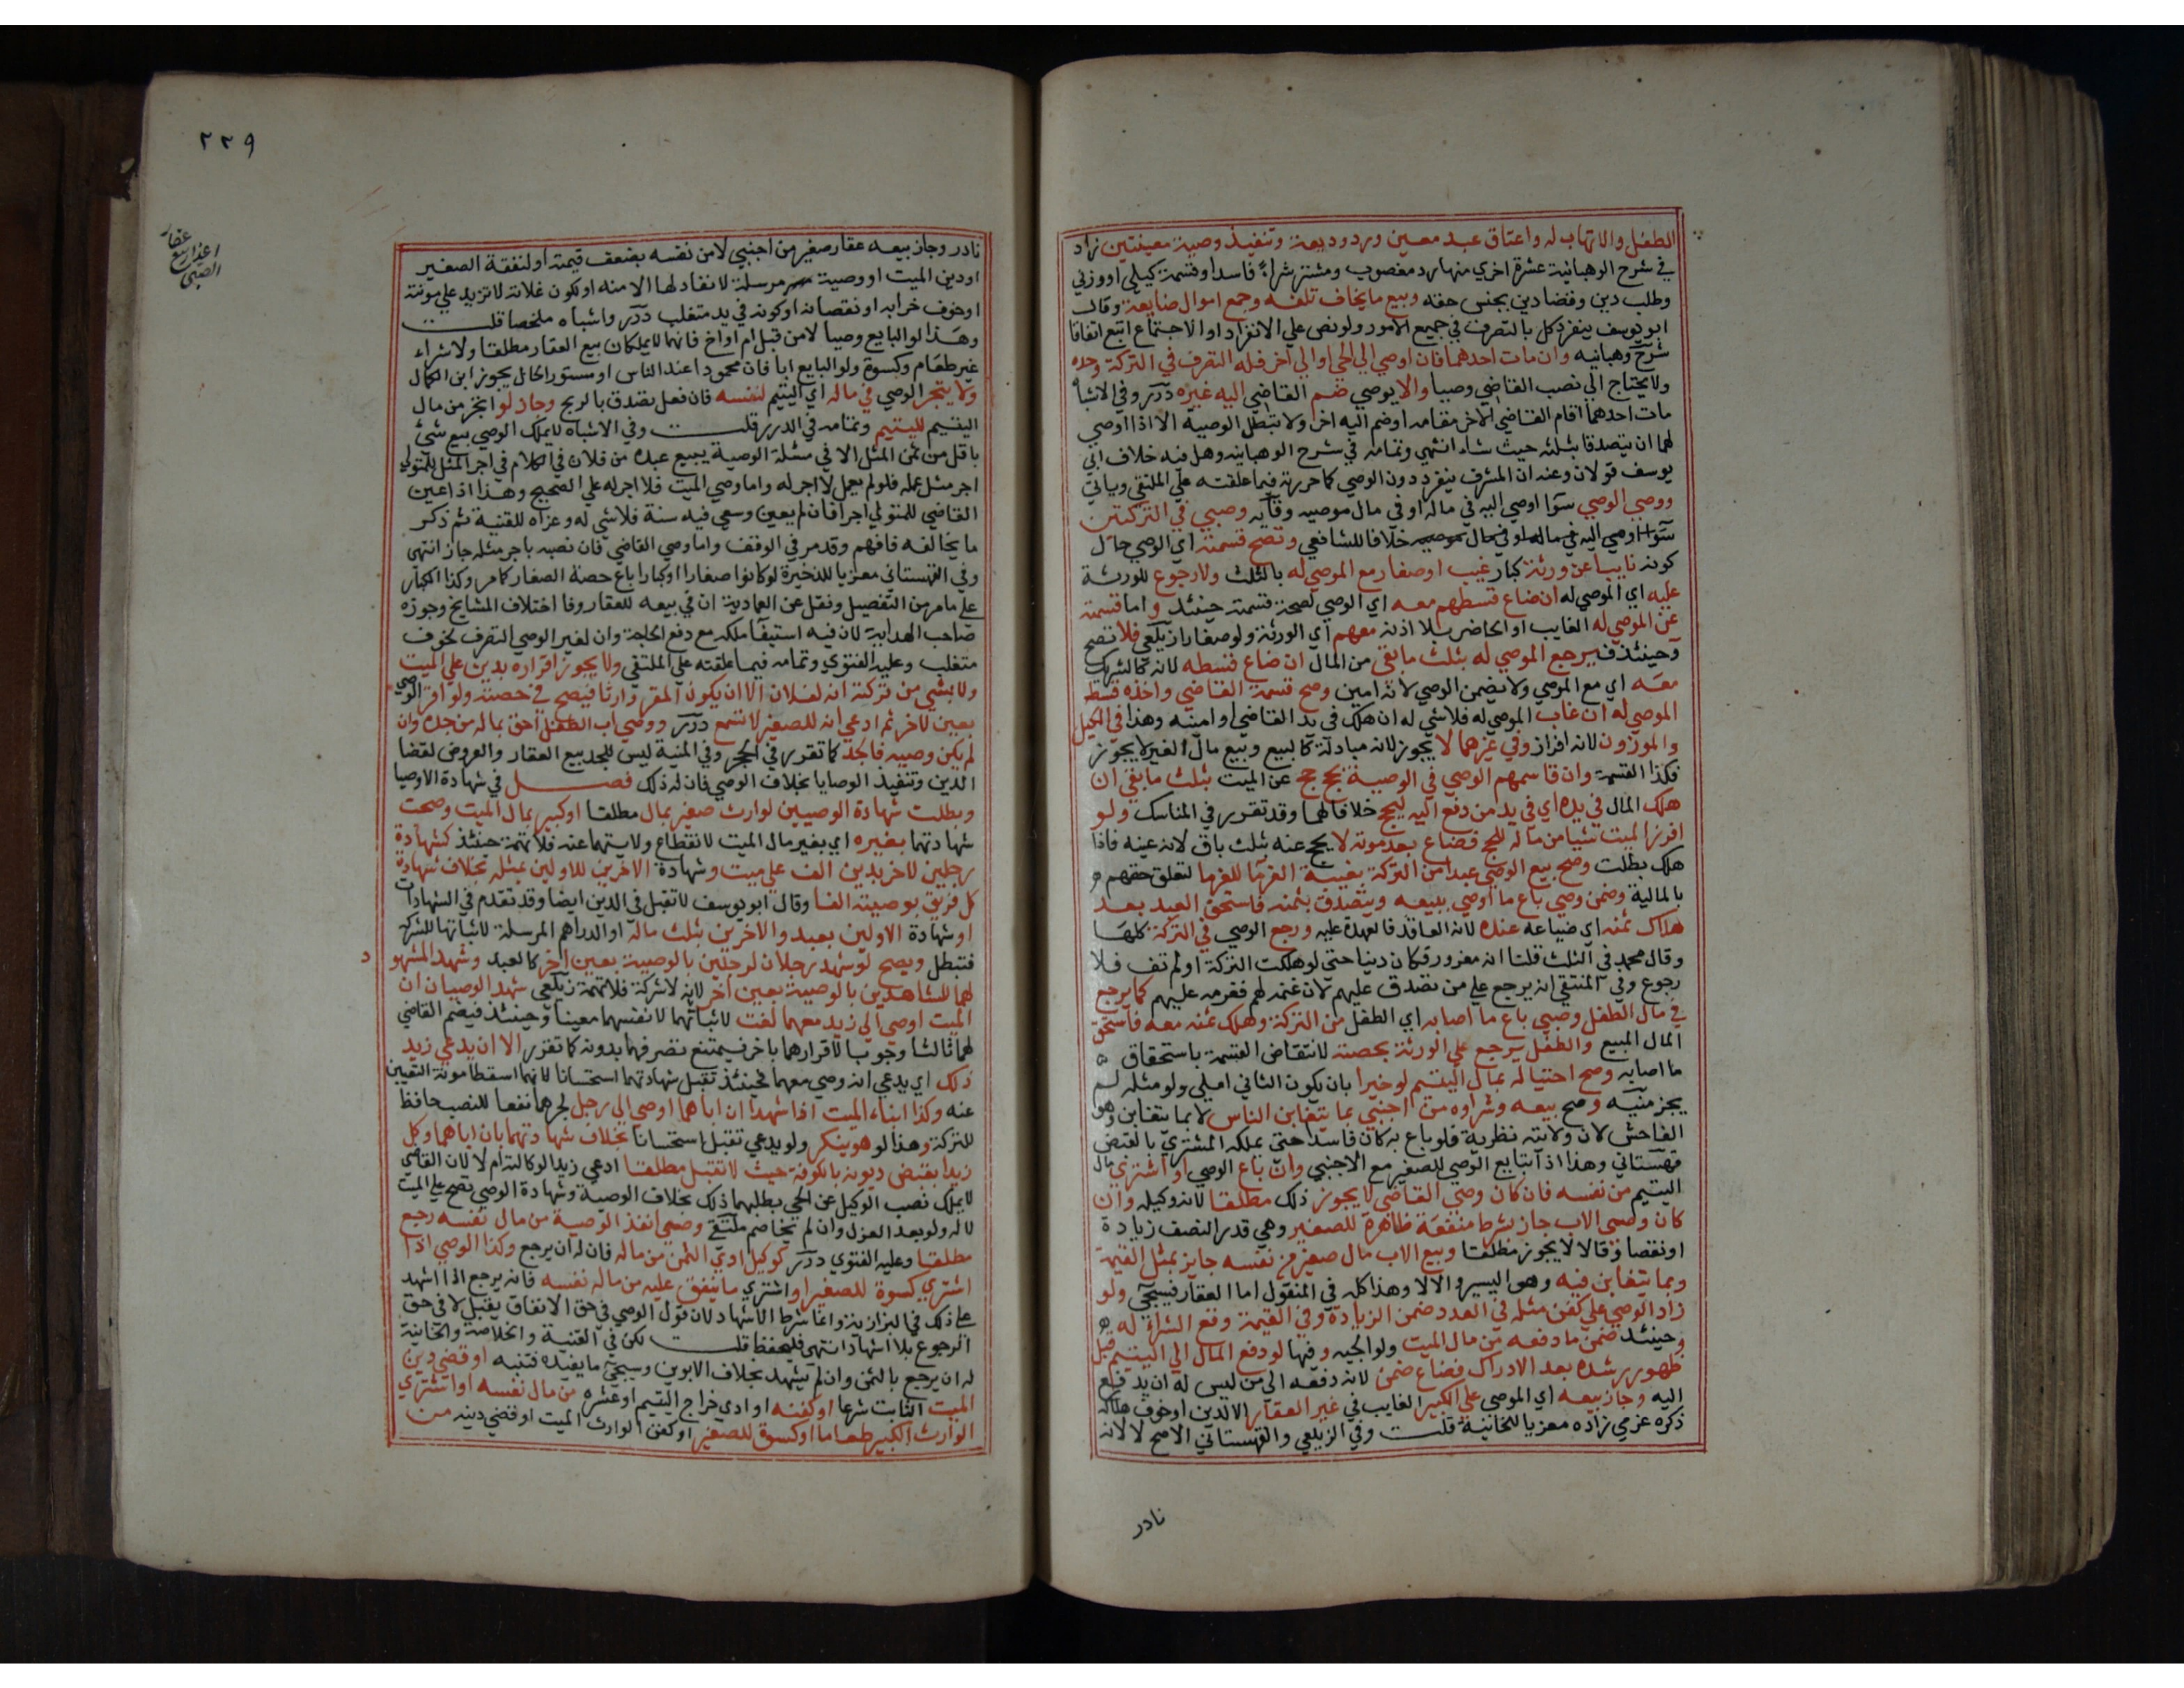 الطفل والاتهاب له واعتاق عبد معين ورد وديعة وتنفيذ وصية معينتين زاد
في شرح الوهبانية عشرة اخري منها رد مغصوب ومشتر شراء فاسدا وقسمة كيلي او وزني
وطلب دين وقضا دين بجنس حقه وبيع ما يخاف تلفه وجمع اموال ضايعة وقال
ابو يوسف ينفرد كل بالتصرف في جميع الامور ولو نص علي الانفراد او الاجتماع اتبع اتفاقا
شرح وهبانيه وان مات احدهما فان اوصي الي الحي او الي اخر فله التصرف في التركة وحده
ولا يحتاج الي نصب القاضي وصيا والا يوصي ضم القاضي اليه غيره درر وفي الاشباه
مات احدهما اقام القاضي الاخر مقامه او ضم اليه اخر ولا تبطل الوصية الا اذا اوصي
لهما ان يتصدقا بثلثه حيث شاء انتهي وتمامه في شرح الوهبانيه وهل فيه خلاف ابي
يوسف قولان وعنه ان المشرف ينفرد دون الوصي كما حررته فيما علقته علي الملتقي وياتي
ووصي الوصي سوا اوصي اليه في ماله او في مال موصيه وقايه وصي في التركتين
سوا اوصي اليه في ماله او في مال موصيه خلافا للشافعي وتصح قسمته اي الوصي حال
كونه نايبا عن ورثة كبار غيب او صغار مع الموصي له بالثلث ولا رجوع للورثة
عليه اي الموصي له ان ضاع قسطهم معه اي الوصي لصحة قسمته حينئذ واما قسمته
عن الموصي له الغايب او الحاضر بلا اذنه معهم اي الورثة ولو صغارا زيلعي فلا تصح
وحينئذ فيرجع الموصي له بثلث ما بقي من المال ان ضاع قسطه لانه كالشريك
معه اي مع الموصي ولا يضمن الوصي لانه امين وصح قسمة القاضي واخذه قسط
الموصي له ان غاب الموصي له فلا شي له ان هلك في يد القاضي او امينه وهذا في المكيل
والموزون لانه افراز وفي غيرهما لا يجوز لانه مبادلة كالبيع وبيع مال الغير لا يجوز
فكذا القسمة وان قاسمهم الوصي في الوصية بحج حج عن الميت بثلث ما بقي ان
هلك المال في يده اي في يد من دفع اليه ليحج خلافا لهما وقد تقرر في المناسك ولو
افرز الميت شيا من ماله للحج فضاع بعد موته لا يحج عنه بثلث باق لانه عينه فاذا
هلك بطلت وصح بيع الوصي عبدا من التركة بغيبة الغرما للغرما لتعلق حقهم
بالمالية وضمن وصي باع ما اوصي ببيعه وبتصدق بثمنه فاستحق العبد بعد
هلاك ثمنه اي ضياعه عنده لانه العاقد فالعهدة عليه ورجع الوصي في التركة كلها
وقال محمد في الثلث قلنا انه مغرور فكان دينا حتي لو هلكت التركة او لم تف فلا
رجوع وفي المنتقي انه يرجع علي من تصدق عليهم لان غنمه لهم فغرمه عليهم كما يرجع
في مال الطفل وصي باع ما اصابه اي الطفل من التركة وهلك ثمنه معه فاستحق
المال المبيع والطفل يرجع علي الورثة بحصته لانتقاض القسمة باستحقاق
ما اصابه وصح احتياله بمال اليتيم لو خيرا بان يكون الثاني املي ولو مثله لم
يجز منيه وصح بيعه وشراوه من اجنبي بما يتغابن الناس لا بما يتغابن وهو
الفاحش لان ولايته نظرية فلو باع به كان فاسدا حتي يملكه المشتري بالقبض
قهستاني وهذا اذا تبايع الوصي للصغير مع الاجنبي وان باع الوصي او اشتري مال
اليتيم من نفسه فان كان وصي القاضي لا يجوز ذلك مطلقا لانه وكيله وان
كان وصي الاب جاز بشرط منفعة ظاهرة للصغير وهي قدر النصف زيادة
او نقصا وقالا لا يجوز مطلقا وبيع الاب مال صغير من نفسه جايز بمثل القيمة
وبما يتغابن فيه وهو اليسير والا لا وهذا كله في المنقول اما العقار فسيجي ولو
زاد الوصي علي كفن مثله في العدد ضمن الزيادة وفي القيمة وقع الشراء له
وحينئذ ضمن ما دفعه من مال الميت ولوالجيه وفيها لو دفع المال الي اليتيم قبل
ظهور رشده بعد الادراك فضاع ضمن لانه دفعه الي من ليس له ان يدفع
اليه وجاز بيعه اي الموصي علي الكبير الغايب في غير العقار الا لدين او خوف هلاكه
ذكره عزمي زاده معزيا للخانية قلت وفي الزيلعي والقهستاني الاصح لا لانه
نادر
٢٣٩
عقار
اعذار بيع
الصبي
نادر وجاز بيعه عقار صغير من اجنبي لا من نفسه بضعف قيمته او لنفقة الصغير
او دين الميت او وصية مرسلة لا نفاد لها الا منه او تكون غلاته لا تزيد علي مونته
او خوف خرابه او نقصانه او كونه في يد متغلب درر واشباه ملخصا قلت
وهذا لو البايع وصيا لا من قبل ام او اخ فانهما لا يملكان بيع العقار مطلقا ولا شراء
غير طعام وكسوة ولو البايع ابا فان محمودا عند الناس او مستور الحال يجوز ابن الكمال
ولا يتجر الوصي في ماله اي اليتيم لنفسه فان فعل تصدق بالربح وجاز لو اتجر من مال
اليتيم لليتيم وتمامه في الدرر قلت وفي الاشباه لا يملك الوصي بيع شئ
باقل من ثمن المثل الا في مسئلة الوصية يبيع عبده من فلان في الكلام في اجر المثل للمتولي
اجر مثل عمله فلو لم يعمل لا اجر له واما وصي الميت فلا اجر له علي الصحيح وهذا اذا عين
القاضي للمتولي اجرا فان لم يعين وسعي فيه سنة فلا شي له وعزاه للقنية ثم ذكر
ما يخالفه فافهم وقد مر في الوقف واما وصي القاضي فان نصبه باجر مثله جاز انتهي
وفي القهستاني معزيا للذخيرة لو كانوا صغارا او كبارا باع حصة الصغار كما مر وكذا الكبار
علي ما مر من التفصيل ونقل عن العمادية ان في بيعه للعقار وفا اختلاف المشايخ وجوزه
صاحب الهداية لان فيه استيفا ملكه مع دفع الحاجة وان لغير الوصي التصرف لخوف
متغلب وعليه الفتوي وتمامه فيما علقته علي الملتقي ولا يجوز اقراره بدين علي الميت
ولا بشي من تركته انه لفلان الا ان يكون المقر وارثا فيصح في حصته ولو اقر الوصي
بعين لاخر ثم ادعي انه للصغير لا تسمع درر ووصي اب الطفل احق بماله من جده وان
لم يكن وصيه فالجد كما تقرر في الحجر وفي المنية ليس للجد بيع العقار والعروض لقضا
الدين وتنفيذ الوصايا بخلاف الوصي فان له ذلك فصل في شهادة الاوصيا
وبطلت شهادة الوصيين لوارث صغير بمال مطلقا او كبير بمال الميت وصحت
شهادتهما بغيره اي بغير مال الميت لانقطاع ولايتهما عنه فلا تهمة حينئذ كشهادة
رجلين لاخر بدين الف علي ميت وشهادة الاخرين للاولين بمثله بخلاف شهادة
كل فريق بوصيته الفا وقال ابو يوسف لا تقبل في الدين ايضا وقد تقدم في الشهادات
او شهادة الاولين بعبد والاخرين بثلث ماله او الدراهم المرسلة لاثباتها للشركة
فتبطل ويصح لو شهد رجلان لرجلين بالوصية بعين اخر كالعبد وشهد المشهود
لهما للشاهدين بالوصية بعين اخر لانه لا شركة فلا تهمة زيلعي شهد الوصيان ان
الميت اوصي الي زيد معهما لغت لاثباتهما لانفسهما معينا وحينئذ فيضم القاضي
لهما ثالثا وجوبا لاقرارهما باخر فيمتنع تصرفهما بدونه كما تقرر الا ان يدعي زيد
ذلك اي يدعي انه وصي معهما فحينئذ تقبل شهادتهما استحسانا لانهما اسقطا مونة التعيين
عنه وكذا ابناء الميت اذا شهدا ان اباهما اوصي الي رجل لجرهما نفعا للنصب حافظ
للتركة وهذا لو هو ينكر ولو يدعي تقبل استحسانا بخلاف شهادتهما بان اباهما وكل
زيدا بقبض ديونه بالكوفة حيث لا تقبل مطلقا ادعي زيد الوكالة ام لا لان القاضي
لا يملك نصب الوكيل عن الحي بطلبهما ذلك بخلاف الوصية وشهادة الوصي تصح علي الميت
لا له ولو بعد العزل وان لم يخاصم ملتقي وصي انفذ الوصية من مال نفسه رجع
مطلقا وعليه الفتوي درر كوكيل ادي الثمن من ماله فان له ان يرجع وكذا الوصي اذا
اشتري كسوة للصغير او اشتري ما ينفق عليه من مال نفسه فانه يرجع اذا اشهد
علي ذلك في البزازية وانما شرط الاشهاد لان قول الوصي في حق الانفاق يقبل لا في حق
الرجوع بلا اشهاد انتهي فليحفظ قلت لكن في القنية والخلاصة والخانية
له ان يرجع بالثمن وان لم يشهد بخلاف الابوين وسيجي ما يفيده فتنبه او قضي دين
الميت الثابت شرعا او كفنه او ادي خراج اليتيم او عشره من مال نفسه او اشتري
الوارث الكبير طعاما او كسوة للصغير او كفن الوارث الميت او قضي دينه من